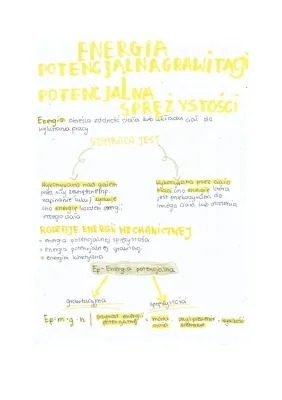 ENERGIA
POTENCJALNA GRAWITACJI
I
POTENCJALNA
SPRĘŻYSTOŚCI
Energia określa zdolność ciała lub układu ciał do
wykonania pracy
Wykonywana nad ciałem
przez siły zewnętrzne
energię
innego ciała
Wykonywana przez ciało
traci ono energię która
jest przekazywana do
innego ciała lub otoczenia
RODZAJE ENERGII MECHANICZNEJ
energia potencjalnej sprężystości
energia potencjalnej grawitacji
energia kinetyczna
Ep - Energia potencjalna
grawitacyjna
sprężystości
Ep = m · g · h
energii
potencjalnej
= masa
· przyspieszenie
· wysokość